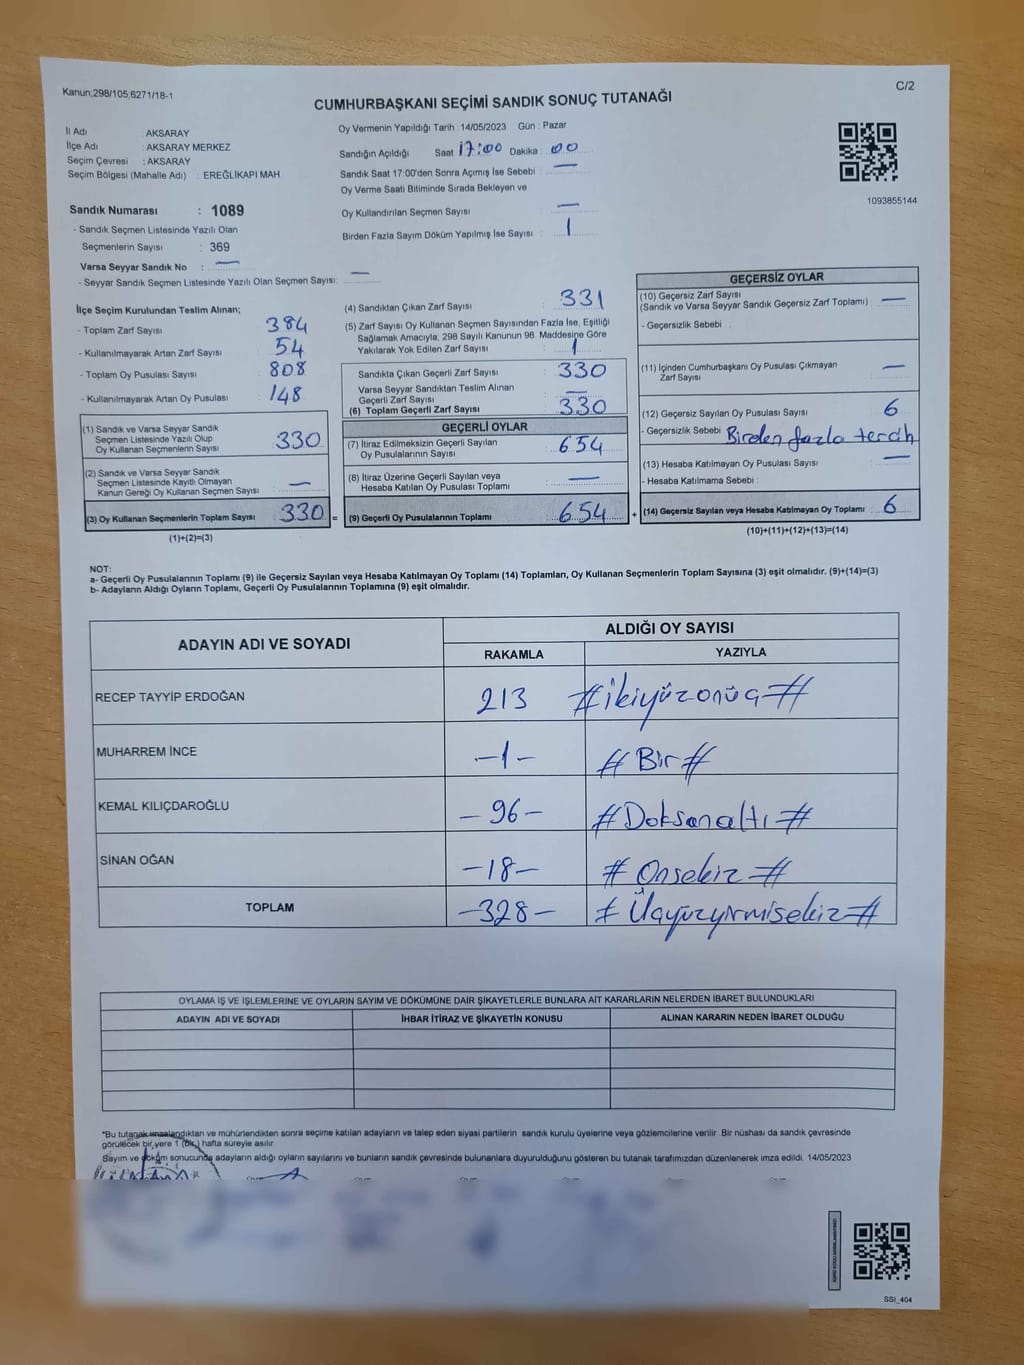 Kanun;298/105;6271/18-1
C/2
CUMHURBAŞKANI SEÇİMİ SANDIK SONUÇ TUTANAĞI
İl Adı : AKSARAY
İlçe Adı : AKSARAY MERKEZ
Seçim Çevresi : AKSARAY
Seçim Bölgesi (Mahalle Adı) : EREĞLİKAPI MAH
Sandık Numarası : 1089
- Sandık Seçmen Listesinde Yazılı Olan
Seçmenlerin Sayısı : 369
Varsa Seyyar Sandık No : —
- Seyyar Sandık Seçmen Listesinde Yazılı Olan Seçmen Sayısı: —
Oy Vermenin Yapıldığı Tarih : 14/05/2023 Gün : Pazar
Sandığın Açıldığı Saat 17:00 Dakika : 00
Sandık Saat 17:00'den Sonra Açımış İse Sebebi : —
Oy Verme Saati Bitiminde Sırada Bekleyen ve
Oy Kullandırılan Seçmen Sayısı : —
Birden Fazla Sayım Döküm Yapılmış İse Sayısı : 1
1093855144
İlçe Seçim Kurulundan Teslim Alınan;
- Toplam Zarf Sayısı : 384
- Kullanılmayarak Artan Zarf Sayısı : 54
- Toplam Oy Pusulası Sayısı : 808
- Kullanılmayarak Artan Oy Pusulası : 148
(1) Sandık ve Varsa Seyyar Sandık
Seçmen Listesinde Yazılı Olup
Oy Kullanan Seçmenlerin Sayısı : 330
(2) Sandık ve Varsa Seyyar Sandık
Seçmen Listesinde Kayıtlı Olmayan
Kanun Gereği Oy Kullanan Seçmen Sayısı : —
(3) Oy Kullanan Seçmenlerin Toplam Sayısı : 330 =
(1)+(2)=(3)
(4) Sandıktan Çıkan Zarf Sayısı : 331
(5) Zarf Sayısı Oy Kullanan Seçmen Sayısından Fazla İse, Eşitliği
Sağlamak Amacıyla; 298 Sayılı Kanunun 98. Maddesine Göre
Yakılarak Yok Edilen Zarf Sayısı : 1
Sandıkta Çıkan Geçerli Zarf Sayısı : 330
Varsa Seyyar Sandıktan Teslim Alınan
Geçerli Zarf Sayısı : —
(6) Toplam Geçerli Zarf Sayısı : 330
GEÇERLİ OYLAR
(7) İtiraz Edilmeksizin Geçerli Sayılan
Oy Pusulalarının Sayısı : 654
(8) İtiraz Üzerine Geçerli Sayılan veya
Hesaba Katılan Oy Pusulası Toplamı : —
(9) Geçerli Oy Pusulalarının Toplamı : 654 +
GEÇERSİZ OYLAR
(10) Geçersiz Zarf Sayısı
(Sandık ve Varsa Seyyar Sandık Geçersiz Zarf Toplamı) : —
- Geçersizlik Sebebi :
(11) İçinden Cumhurbaşkanı Oy Pusulası Çıkmayan
Zarf Sayısı : —
(12) Geçersiz Sayılan Oy Pusulası Sayısı : 6
- Geçersizlik Sebebi : Birden fazla tercih
(13) Hesaba Katılmayan Oy Pusulası Sayısı : —
- Hesaba Katılmama Sebebi :
(14) Geçersiz Sayılan veya Hesaba Katılmayan Oy Toplamı : 6
(10)+(11)+(12)+(13)=(14)
NOT:
a- Geçerli Oy Pusulalarının Toplamı (9) ile Geçersiz Sayılan veya Hesaba Katılmayan Oy Toplamı (14) Toplamları, Oy Kullanan Seçmenlerin Toplam Sayısına (3) eşit olmalıdır. (9)+(14)=(3)
b- Adayların Aldığı Oyların Toplamı, Geçerli Oy Pusulalarının Toplamına (9) eşit olmalıdır.
ADAYIN ADI VE SOYADI
ALDIĞI OY SAYISI
RAKAMLA YAZIYLA
RECEP TAYYİP ERDOĞAN 213 #ikiyüzonüç#
MUHARREM İNCE -1- #Bir#
KEMAL KILIÇDAROĞLU -96- #Doksanaltı#
SİNAN OĞAN -18- #Onsekiz#
TOPLAM -328- #Üçyüzyirmisekiz#
OYLAMA İŞ VE İŞLEMLERİNE VE OYLARIN SAYIM VE DÖKÜMÜNE DAİR ŞİKAYETLERLE BUNLARA AİT KARARLARIN NELERDEN İBARET BULUNDUKLARI
ADAYIN ADI VE SOYADI İHBAR İTİRAZ VE ŞİKAYETİN KONUSU ALINAN KARARIN NEDEN İBARET OLDUĞU
*Bu tutanak imzalandıktan ve mühürlendikten sonra seçime katılan adayların ve talep eden siyasi partilerin sandık kurulu üyelerine veya gözlemcilerine verilir .Bir nüshası da sandık çevresinde
görülecek bir yere 1 (bir) hafta süreyle asılır
Sayım ve döküm sonucunda adayların aldığı oyların sayılarını ve bunların sandık çevresinde bulunanlara duyurulduğunu gösteren bu tutanak tarafımızdan düzenlenerek imza edildi. 14/05/2023
SSI_404